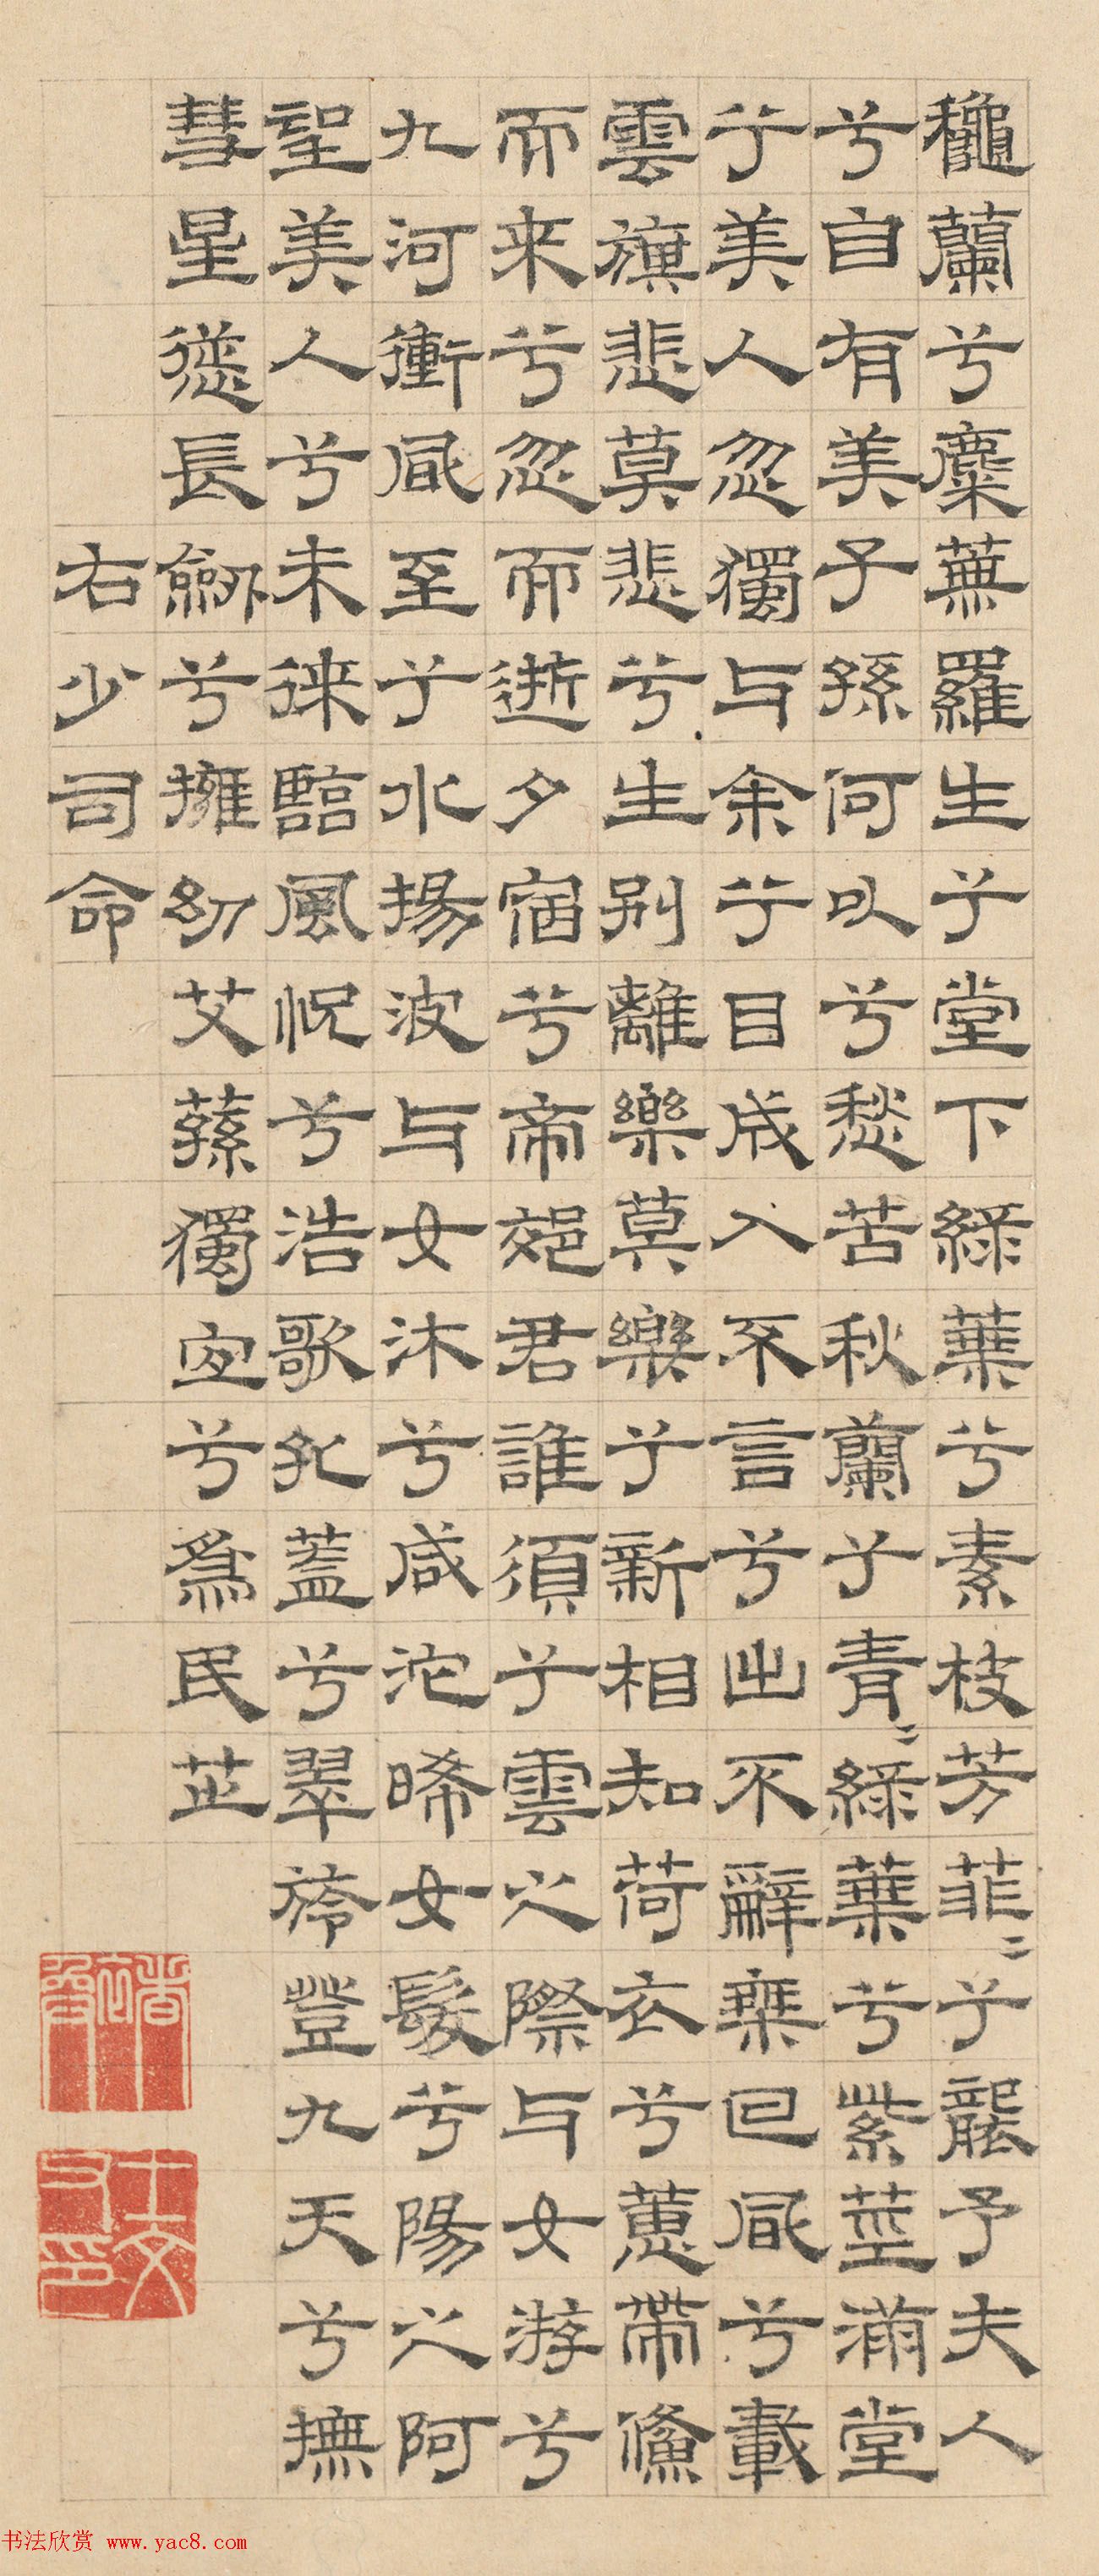 龝蘭兮麋蕪羅生兮堂下綠葉兮素枝芳菲〻兮襲予夫人
兮自有美子孫何以兮愁苦秋蘭兮青〻綠葉兮紫莖滿堂
兮美人忽獨与余兮目成入不言兮出不辭椉回風兮載
雲旗悲莫悲兮生別離樂莫樂兮新相知荷衣兮蕙帶儵
而来兮忽而逝夕宿兮帝郊君誰須兮雲之際与女游兮
九河衝風至兮水揚波与女沐兮咸沱晞女髮兮陽之阿
望美人兮未徠臨風怳兮浩歌孔蓋兮翠旍登九天兮撫
彗星慫長劒兮擁幼艾蓀獨宜兮為民芷
右少司命
书法欣赏 www.yac8.com